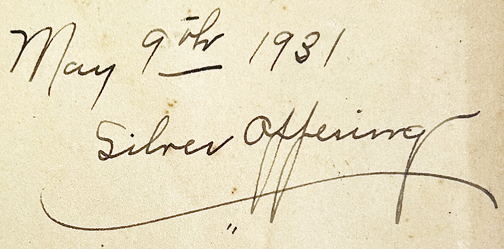 May 9th 1931
Silver Offering
"